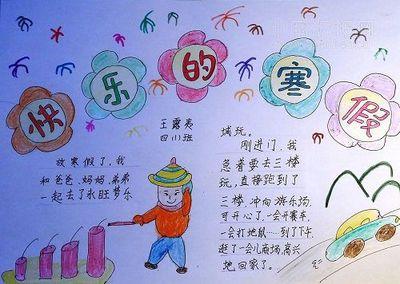 快乐的寒假
王露
四(1)班
放寒假了,我
和爸爸、妈妈、弟弟
一起去了永旺梦乐
城玩。
刚进门,我
急着要去三楼
玩,直接跑到了
三楼,冲向游乐场,
可开心了,一会开赛车,
一会打地鼠……到了下午,
逛了一会儿商场,高兴
地回家了。